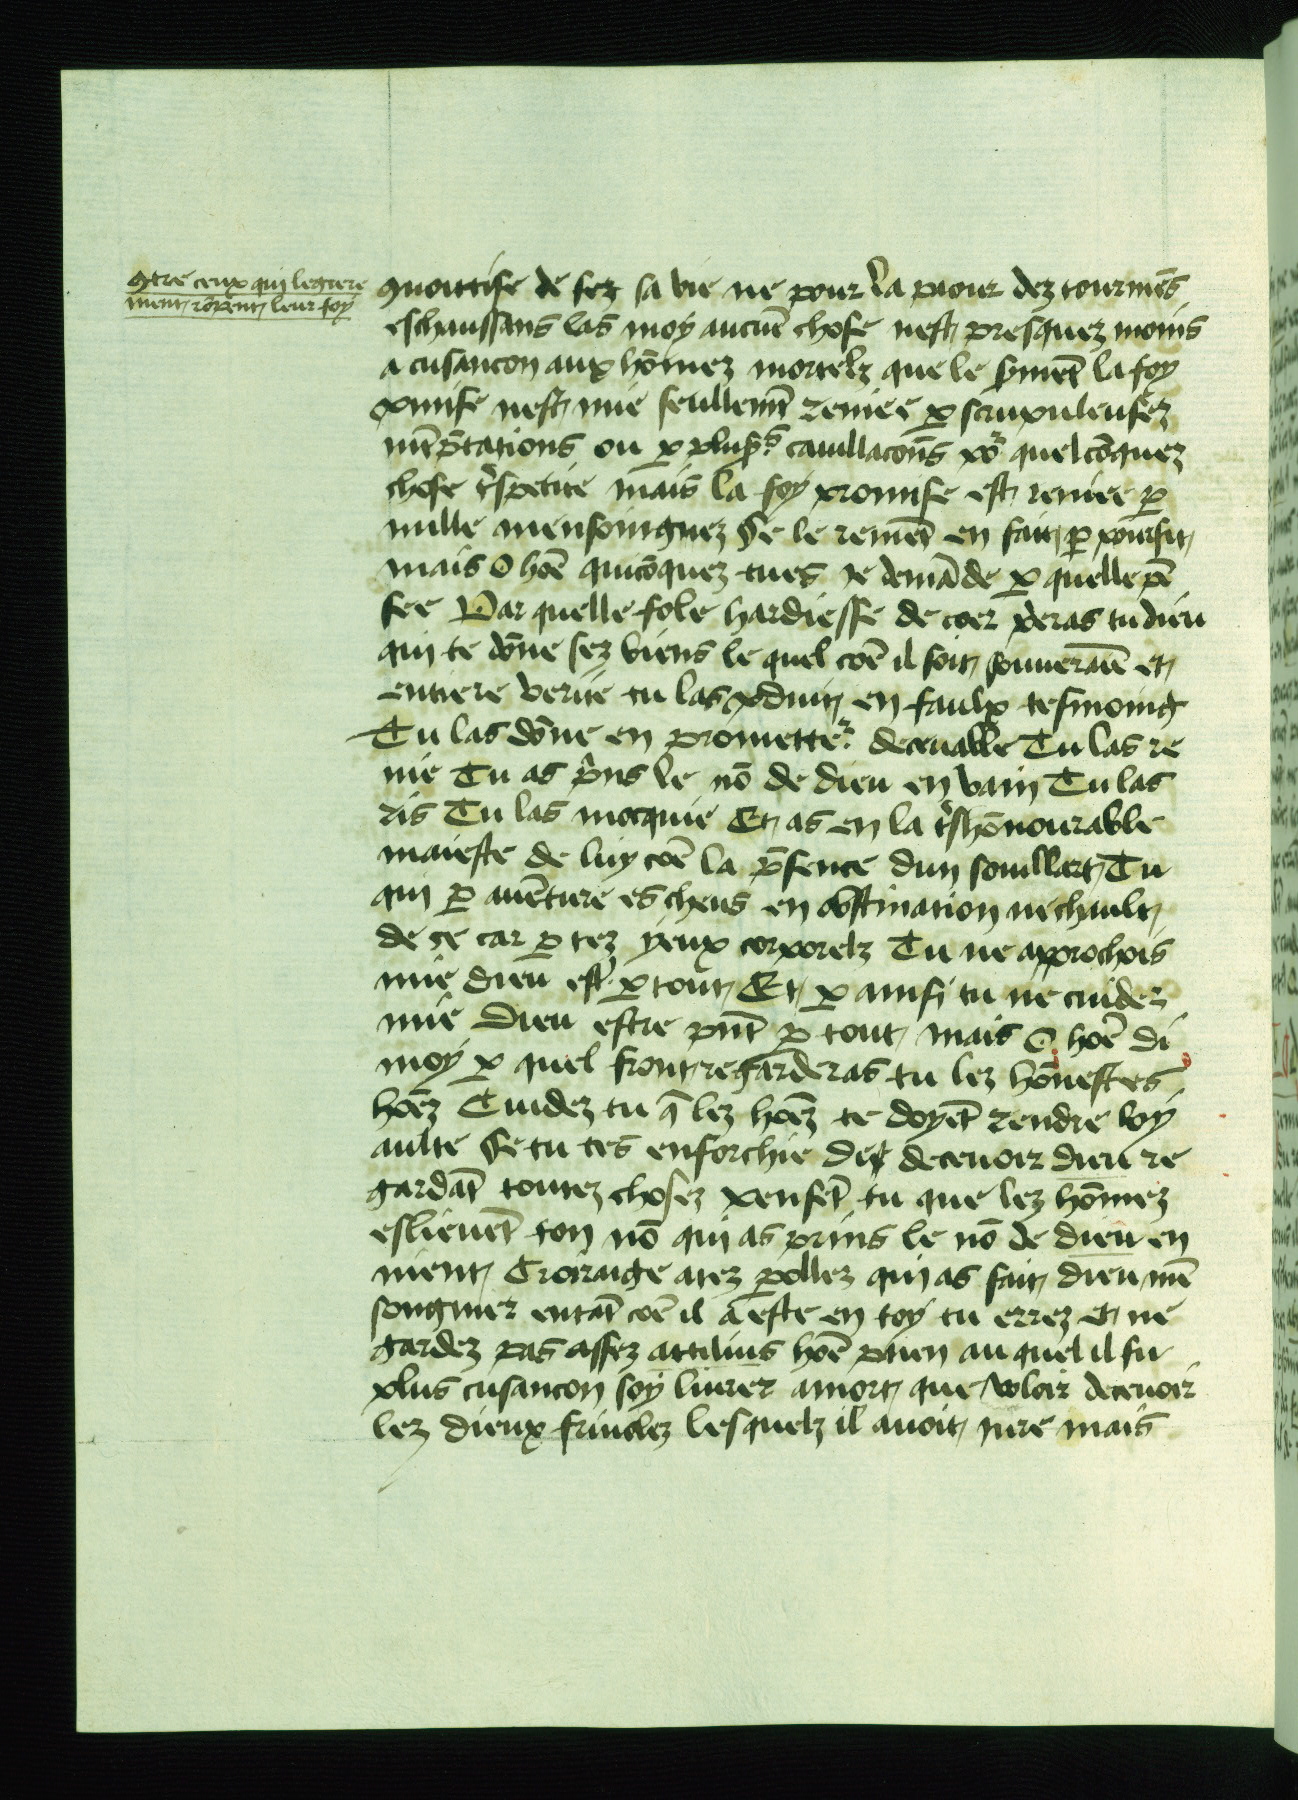 9tre ceux qui legiere
ment rōpent leur foy
9uoittise de sez sa vie ne pour la paour dez tourmēs
eschaussans las moy aucūe chose nest presquez moins
a cusancon aux hōmez mortelz que le sermēt la foy
pmise nest mie seullemt reniee p scrupuleusez
ou p plusrs cauillacōns por quelcōquez
chose trspetite mais la foy promise est reniee p
mille mensoinguez Se le remēt en fait p poursit
mais O hōe quicōquez tu es Je demāde p quelle pē
see Par quelle fole hardiesse de coer peras tu dieu
qui te dōne sez biens le quel cōe il soit souueraīe et
entiere verite tu las pduit en faulx tesmoing
Tu las dōne en prometter deceuable Tu las re
nie Tu as prins le nō de dieu en vain Tu las
ris Tu las mocquie Et as en la trshōnourable
maieste de luy cōe la psence dun souillart Tu
qui p auēture es cheus en obstination ne chault
de ce car p tez yeux corporelz Tu ne approchois
mie dieu est p tout Et p ainsi tu ne cuidez
mie Dieu estre pnt p tout mais O hōe di
moy p quel front regarderas tu lez hōnestes
hōez Cuidez tu q̄ lez hōez te doyēt rendre loy
aulte Se tu tes enforchie de deceuoir dieu re
gardāt toutez chosez penset tu que lez hōmez
eslieuēt ton nō qui as prins le nō de dieu en
nient Croiraige a tez pollez qui as fait dieu mē
songnier entāt cōe il a este en toy tu errez et ne
gardez pas assez attilius hōe paien au quel il fu
plus cusancon soy liurer a mort que voloir deceuoir
lez dieux friuolez lesquelz il auoit iure mais